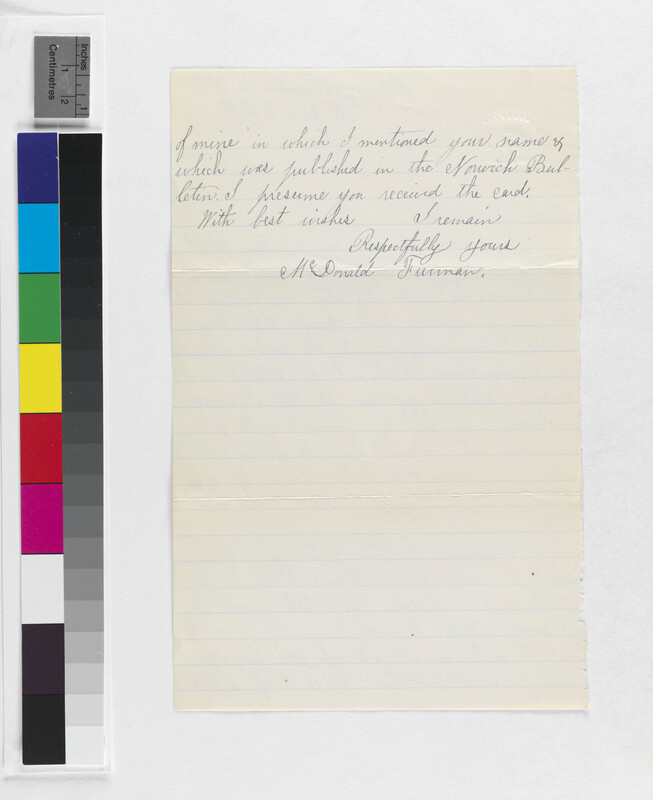 Inches
Centimetres
1
1
2
of mine in which I mentioned your name &
which was published in the Norwich Bul-
letin. I presume you received the card.
With best wishes I remain
Respectfully yours
McDonald Furman.